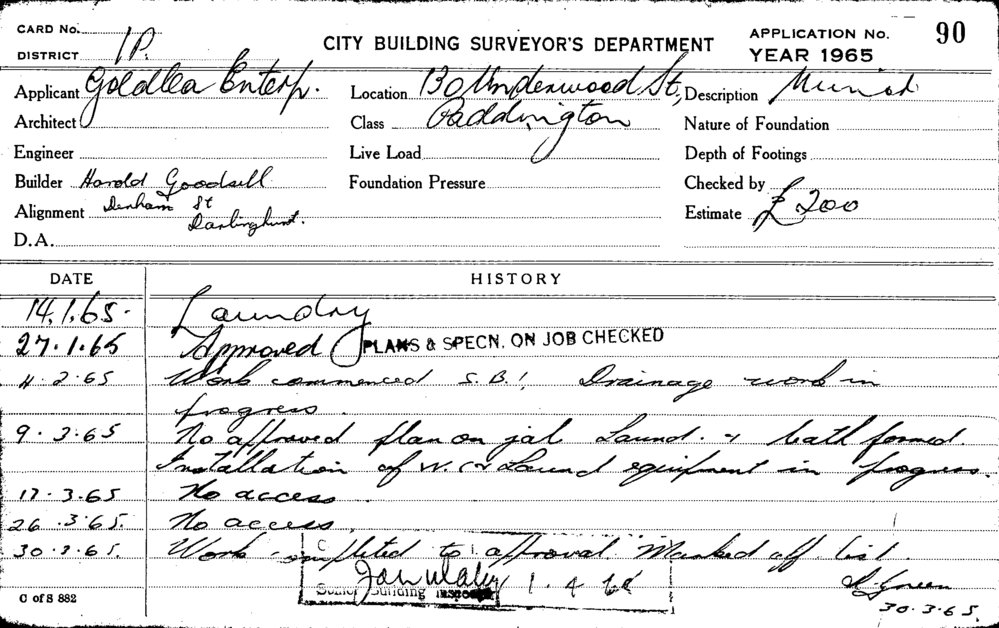 CARD No. 1P. CITY BUILDING SURVEYOR'S DEPARTMENT APPLICATION No. 90
DISTRICT YEAR 1965
Applicant Goldlea Enterp. Location 130 Underwood St, Description
Architect Class Paddington Nature of Foundation
Engineer Live Load Depth of Footings
Builder Harold Goodsell Foundation Pressure Checked by
Alignment Denham St Estimate £200
Darlinghurst.
D.A.
DATE HISTORY
14.1.65. Laundry
27.1.65 Approved PLANS & SPECN. ON JOB CHECKED
4.2.65 Work commenced S.B.! Drainage work in
progress.
9.3.65 No approved plan on job Laund. & bath formed
Installation of W.C & Laund equipment in progress.
17.3.65 No access
26.3.65. No access.
30.3.65. Work completed to approval Marked off list.
1.4.65
Senior Building Inspector
30.3.65.
C of S 882